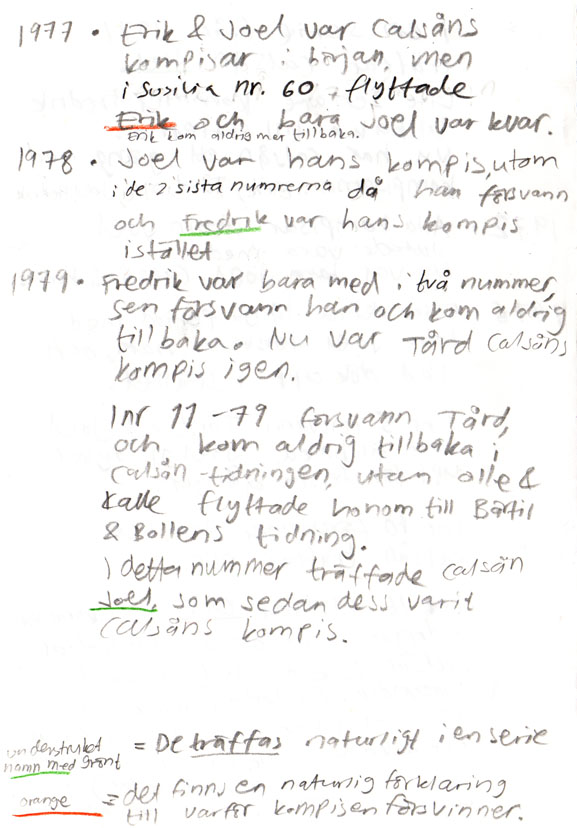 1977 • Erik & Joel var Calsåns
kompisar i början, men
i Susilia nr. 60, flyttade
Erik och bara Joel var kvar.
Erik kom aldrig mer tillbaka.
1978 • Joel var hans kompis, utom
i de 2 sista numrerna då han försvann
och Fredrik var hans kompis
istället
1979 • Fredrik var bara med i två nummer,
sen försvann han och kom aldrig
tillbaka. Nu var Tård Calsåns
kompis igen.
I nr 11-79 försvann Tård,
och kom aldrig tillbaka i
Calsån-tidningen, utan Olle &
Kalle flyttade honom till Bärtil
& Bollens tidning.
I detta nummer träffade Calsån
Joel, som sedan dess varit
Calsåns kompis.
understruket = De träffas naturligt i en serie
namn med grönt
orange = det finns en naturlig förklaring
till varför kompisen försvinner.